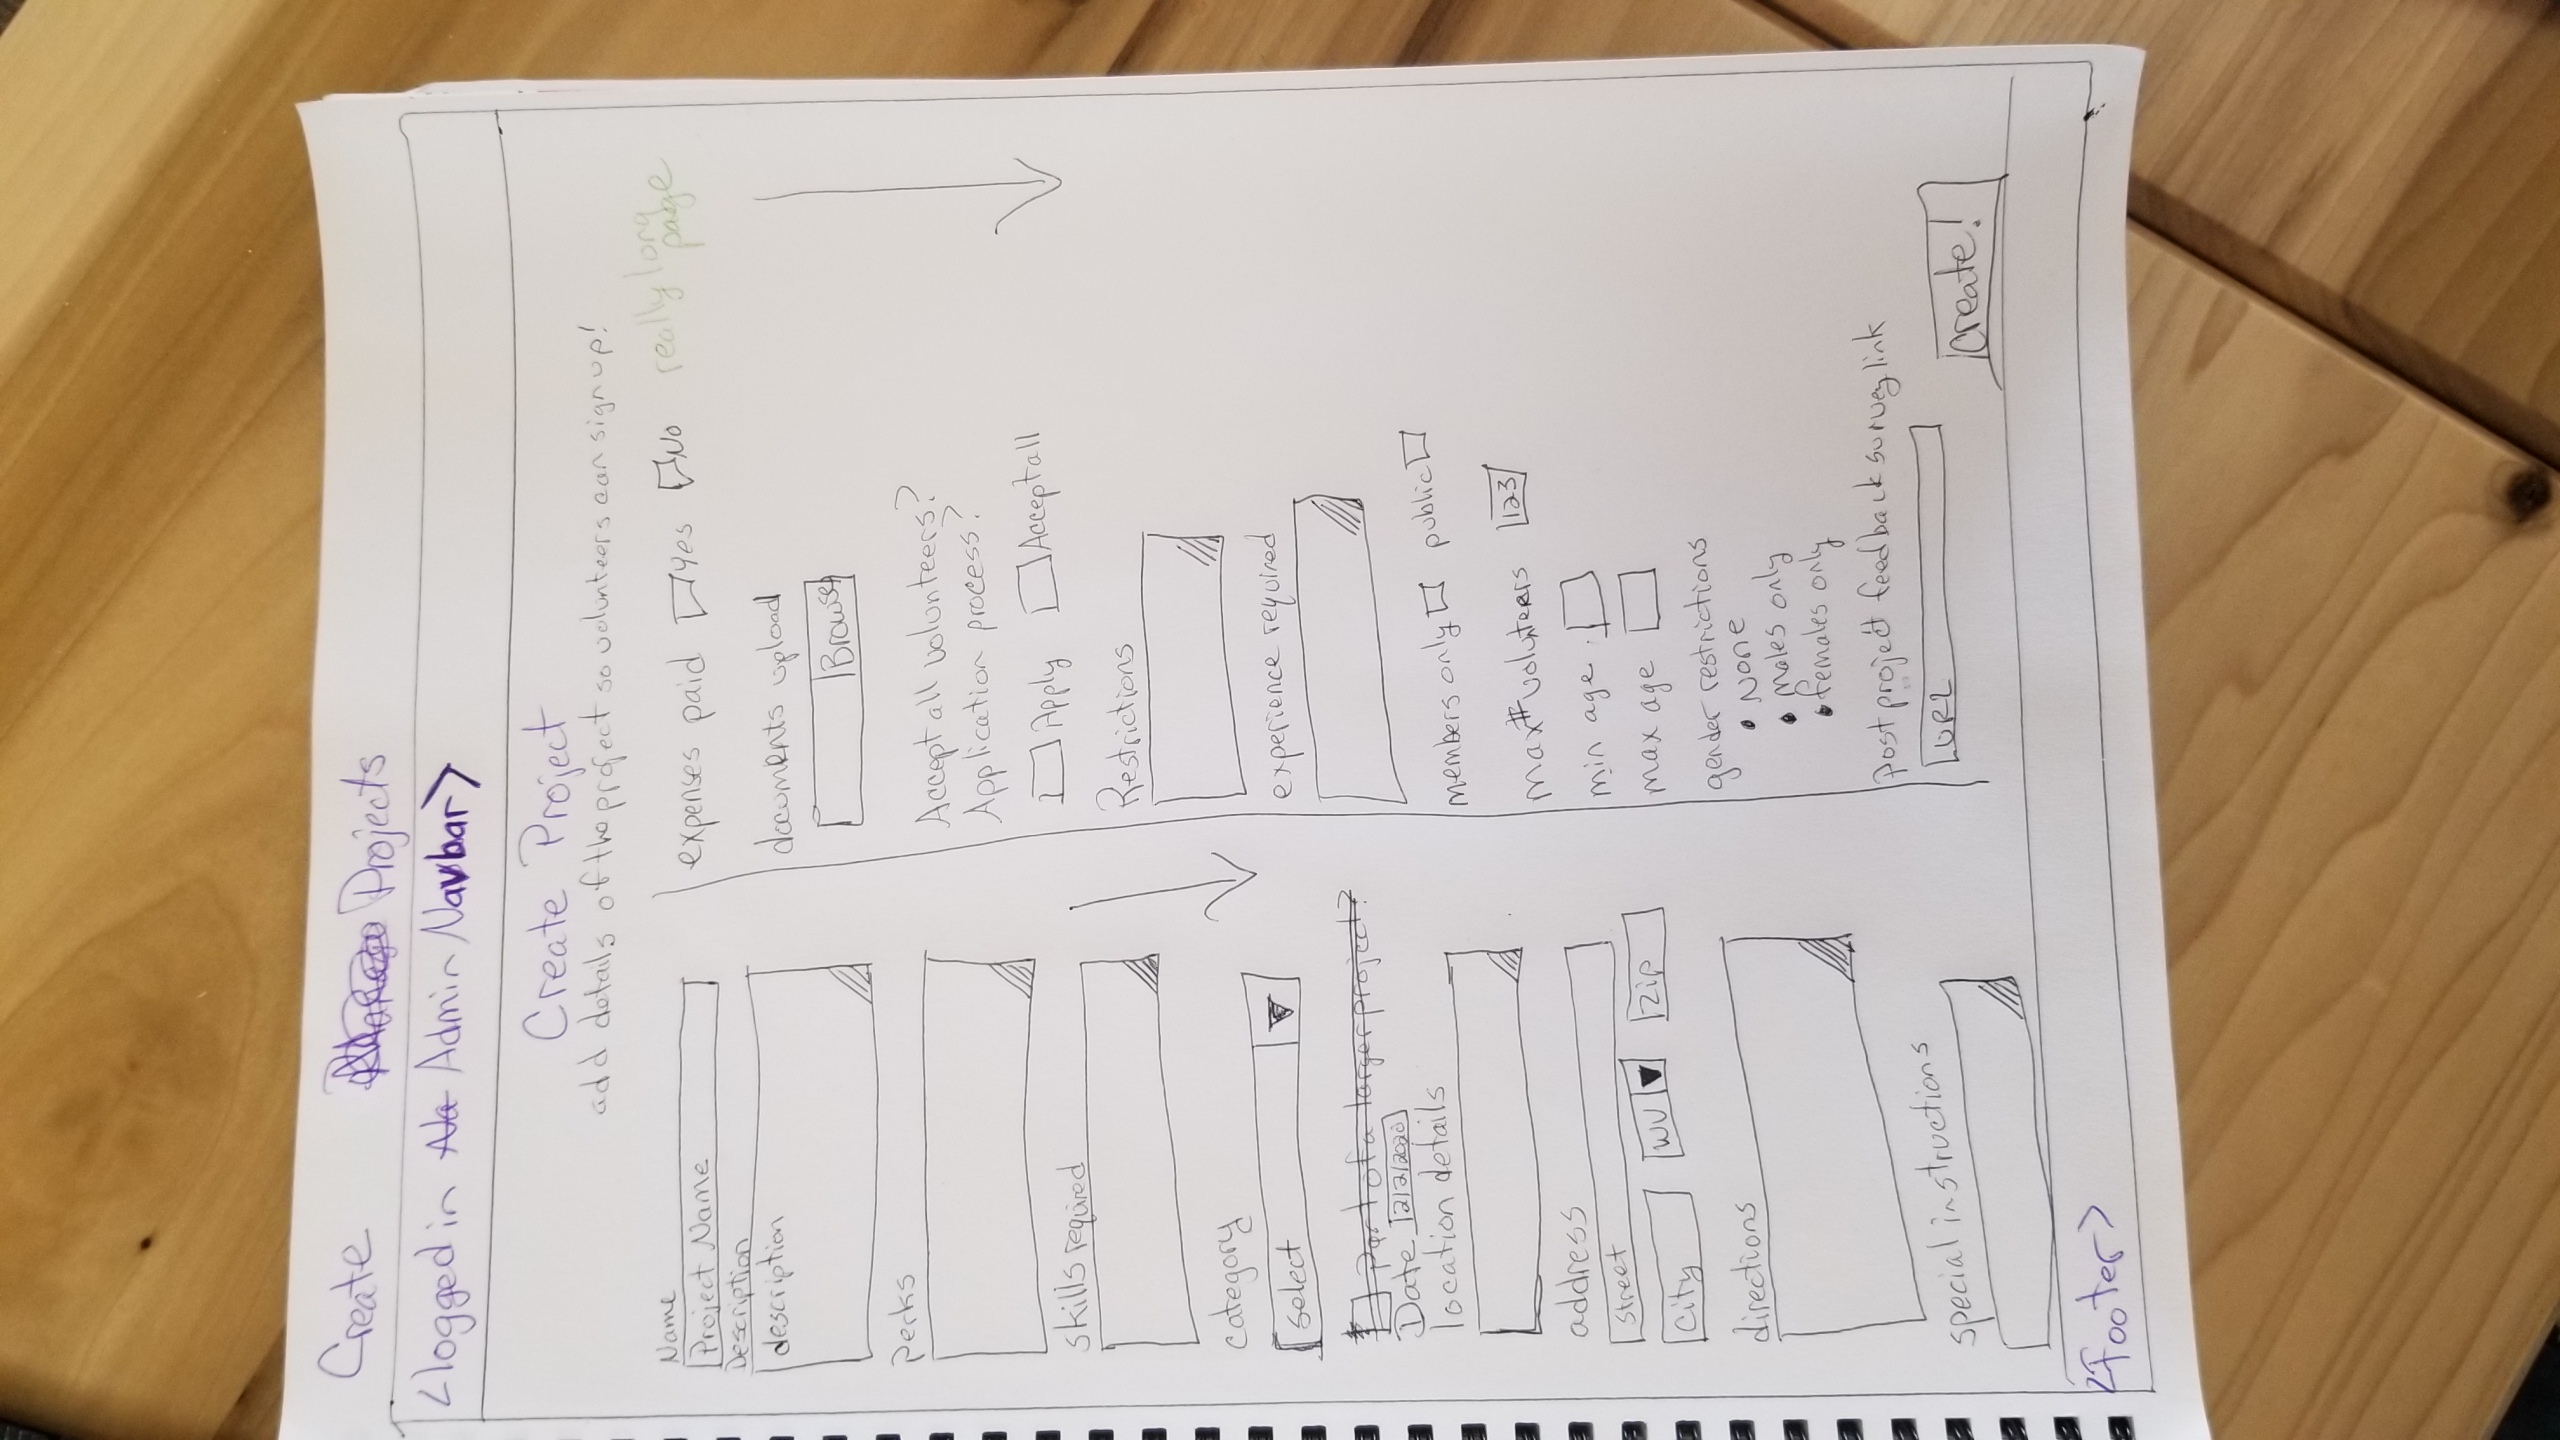 Create Projects
<logged in Admin Navbar>
Create Project
add details of the project so volunteers can sign up!
Name
Project Name
Description
description
Perks
skills required
category
select
Part of a larger project?
Date 12/2/2020
location details
address
street
City WV Zip
directions
special instructions
expenses paid Yes No
really long
page
documents upload
Browse
Accept all volunteers?
Application process?
Apply Accept all
Restrictions
experience required
members only public
max # volunteers 123
min age
max age
gender restrictions
• None
• males only
• females only
post project feedback survey link
URL
create!
<Footer>